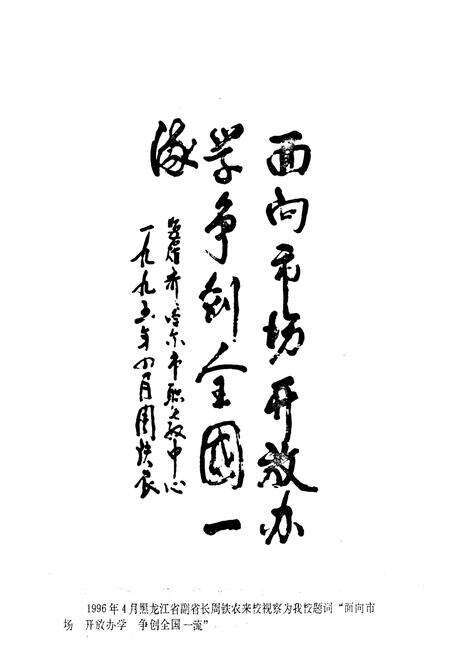 面向市场开放办
学争创全國一
流
齐哈尔市职教中心
一九九五年四月周铁农
1996年4月黑龙江省副省长周铁农来校视察为我校题词“面向市
场　开放办学　争创全国一流”